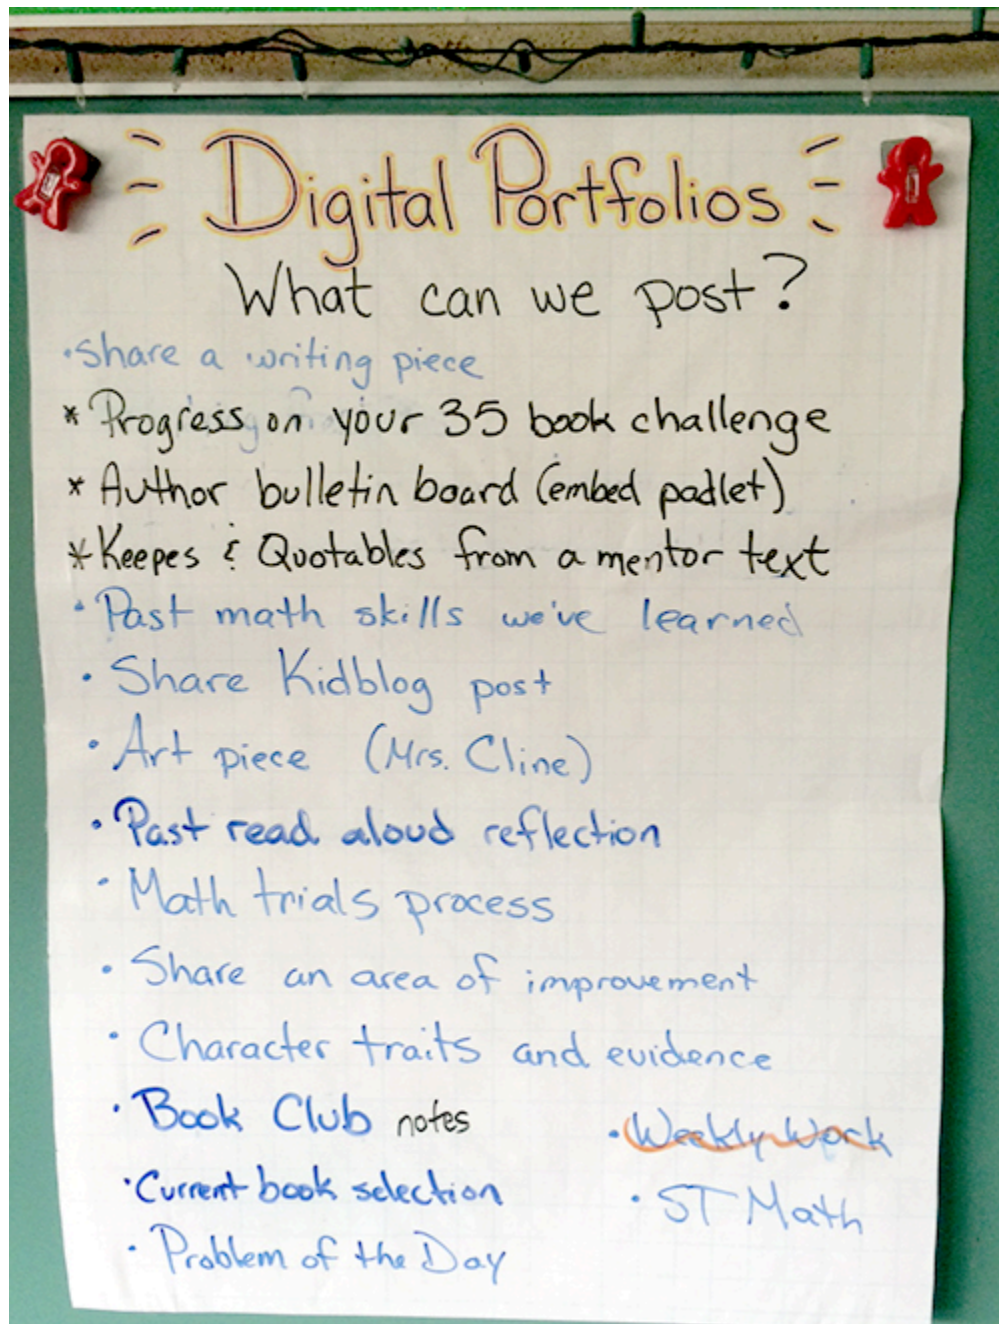 Digital Portfolios
What can we post?
• Share a writing piece
* Progress on your 35 book challenge
* Author bulletin board (embed padlet)
* Keepes & Quotables from a mentor text
• Past math skills we've learned
• Share Kidblog post
• Art piece (Mrs. Cline)
• Past read aloud reflection
• Math trials process
• Share an area of improvement
• Character traits and evidence
• Book Club notes
• Weekly Work
• Current book selection
• ST Math
• Problem of the Day